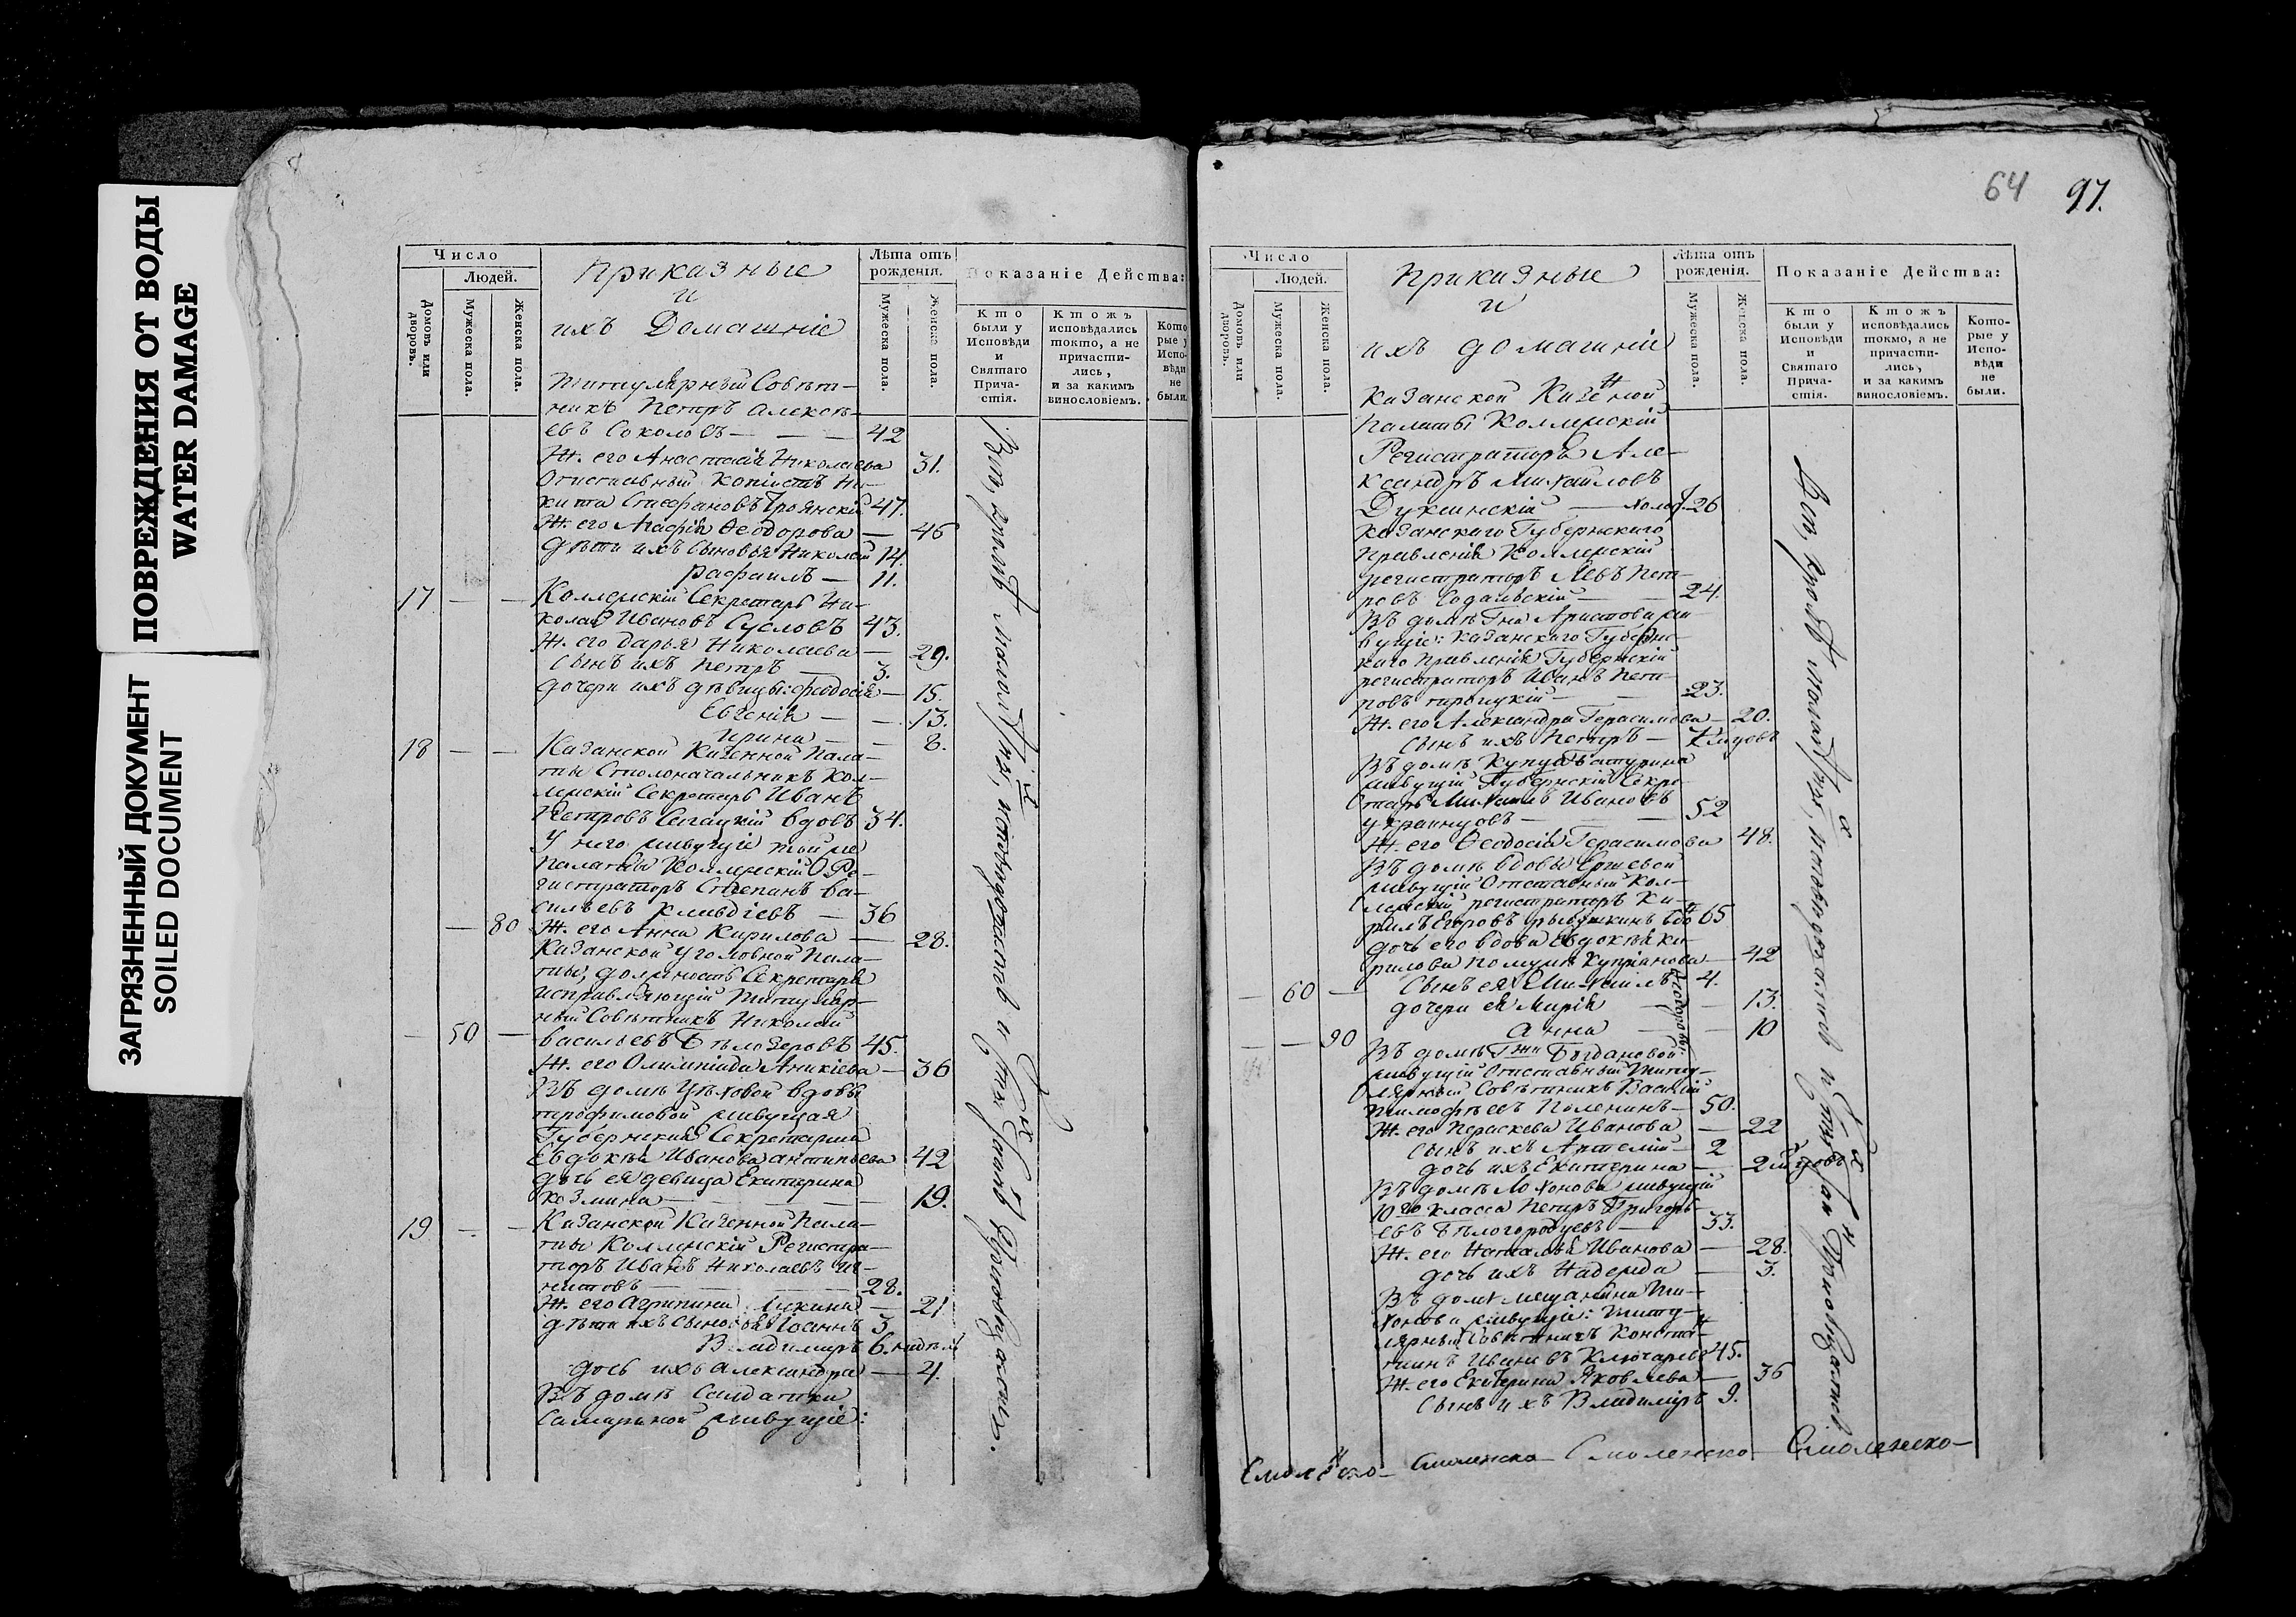 ПОВРЕЖДЕНИЯ ОТ ВОДЫ
WATER DAMAGE
ЗАГРЯЗНЕННЫЙ ДОКУМЕНТ
SOILED DOCUMENT
Число
Людей.
Домовъ или дворовъ.
Мужеска пола.
Женска пола.
Приказные
и
ихъ Домашніе
Лѣта отъ рожденія.
Мужеска пола.
Женска пола.
Показаніе Действа:
Кто были у Исповѣди и Святаго Причастія.
Ктожъ исповѣдались токмо, а не причастились, и за какимъ винословіемъ.
Которые у Исповѣди не были.
Титулярный Совѣт-
никъ Петръ Алексѣ-
евъ Соколовъ — — 42
Ж. его Анастасія Николаева 31.
Отставный Копіистъ Ни-
кита Стефановъ Троянскій 47.
Ж. его Агафія Ѳеодорова — 46
Дѣти ихъ сыновья Николай 14.
Рафаилъ — 11.
17 — — Коллежскій Секретарь Ни-
колай Ивановъ Сусловъ 43.
Ж. его Дарья Николаева — 29.
Сынъ ихъ Петръ — 3.
Дочери ихъ дѣвицы: Феодосія — 15.
Евгенія — — 13.
Ирина — — 8.
18 — — Казанской Казенной Пала-
ты Столоначальникъ Кол-
лежскій Секретарь Иванъ
Петровъ вдовъ 34.
У него живущіе той же
Палаты Коллежскій Ре-
гистраторъ Степанъ Ва-
сильевъ — 36
— 80 Ж. его Анна Кирилова — 28.
Казанской Уголовной Пала-
ты, должность Секретаря
исправляющій Титуляр-
ный Совѣтникъ Николай
— 50 — Васильевъ Бѣлозеровъ 45.
Ж. его Олимпіада Аникіева — 36
Въ домѣ Цѣховой вдовы
Трофимовой живущая
Губернская Секретарша
Евдокѣя Иванова Антипьева 42
дочь ея девица Екатерина
Козмина — — 19.
19 — — Казанской Казенной Пала-
ты Коллежскій Регистра-
торъ Иванъ Николаевъ
— 28.
Ж. его Агрипина — 21
Дѣти ихъ сыновья Іоаннъ 3
Владимиръ 6. недѣль
дочь ихъ Александра — 4.
Въ домѣ Салдатки
живущіе:
Всѣ, кромѣ малолѣтнихъ, исповѣдались и Святыхъ Таинъ Пріобщились.
64 97.
Число
Людей.
Домовъ или дворовъ.
Мужеска пола.
Женска пола.
Приказные
и
ихъ домашніе
Лѣта отъ рожденія.
Мужеска пола.
Женска пола.
Показаніе Действа:
Кто были у Исповѣди и Святаго Причастія.
Ктожъ исповѣдались токмо, а не причастились, и за какимъ винословіемъ.
Которые у Исповѣди не были.
Казанской Казенной
Палаты Коллежскій
Регистраторъ Але-
ксандръ Михайловъ
— холост. 26
Казанскаго Губернскаго
Правленія Коллежскій
регистраторъ Левъ Пет-
ровъ — 24.
Въ домѣ Гна Аристова жи-
вущіе: Казанскаго Губернс-
каго Правленія Губернскій
регистраторъ Иванъ Пет-
ровъ Троицкій — 23.
Ж. его Александра Герасимова — 20.
Сынъ ихъ Петръ —
Въ домѣ Купца Батурина
живущій Губернскій Секре-
тарь Михаилъ Ивановъ
Украинцовъ — — 52
Ж. его Ѳеодосія Герасимова 48.
Въ домѣ вдовы
живущій Отставный Кол-
лежскій регистраторъ Ки-
рилъ Егоровъ вдовъ 65
дочь его вдова Евдокѣя Ки-
рилова по мужѣ Купріянова — 42
— 60 — Сынъ ея Михаилъ 4.
дочери ея Марія — 13.
— — 90 Анна — — 10
Въ домѣ Гжи Богдановой
живущій Отставный Титу-
лярный Совѣтникъ Василій
Тимофѣевъ Поленинъ — 50.
Ж. его Параскева Иванова — 22
Сынъ ихъ Артемій — 2
дочь ихъ Екатерина —
Въ домѣ Лохонова живущій
10го класса Петръ Григорь-
евъ Бѣлогородцевъ — 33.
Ж. его Наталья Иванова — 28.
дочь ихъ Надежда — 3.
Въ домѣ мещанина Ти-
хонова живущіе: Титу-
лярный Совѣтникъ Конста-
тинъ Ивановъ Ключаревъ 45.
Ж. его Екатерина Яковлева — 36
Сынъ ихъ Владиміръ 9.
Всѣ, кромѣ малолѣтнихъ, исповѣдались и Святыхъ Таинъ Пріобщились.
Смоленско- Смоленско- Смоленско- Смоленско-